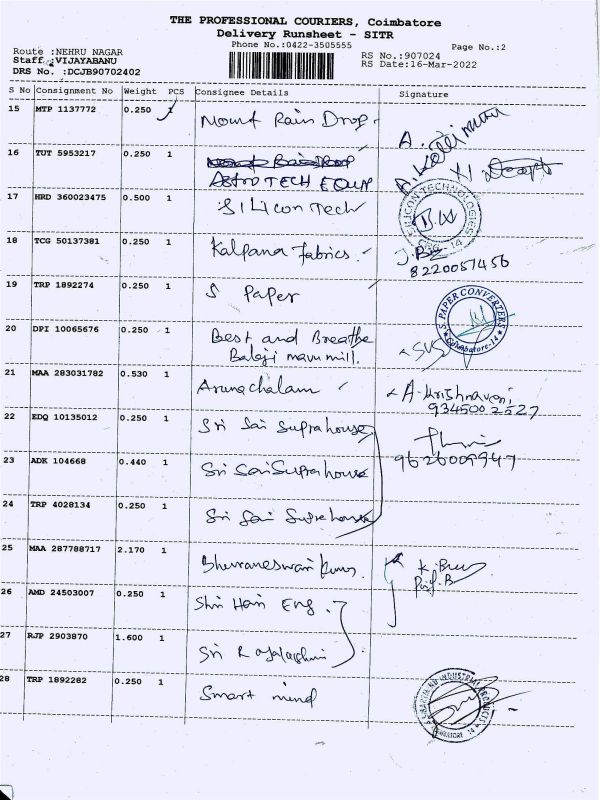 THE PROFESSIONAL COURIERS, Coimbatore
Delivery Runsheet - SITR
Phone No.:0422-3505555
Page No.:2
Route :NEHRU NAGAR
Staff :VIJAYABANU
DRS No. :DCJB90702402
RS No.:907024
RS Date:16-Mar-2022
S No Consignment No Weight PCS Consignee Details Signature
15 MTP 1137772 0.250 1 Mount Rain Drop
16 TUT 5953217 0.250 1
ASTRO TECH EQUIP
17 HRD 360023475 0.500 1 SILicon Tech
SILICON TECHNOLOGIES
CBE - 14
18 TCG 50137381 0.250 1 Kalpana Fabrics
8220057456
19 TRP 1892274 0.250 1 S Paper
S. PAPER CONVERTERS
Coimbatore-14
20 DPI 10065676 0.250 1 Best and Breathe
Balaji mavu mill.
21 MAA 283031782 0.530 1 Arunachalam A. Krishnaveni
9345002527
22 EDQ 10135012 0.250 1 Sri Sai Supra house
9626009947
23 ADK 104668 0.440 1 Sri Sai Supra house
24 TRP 4028134 0.250 1 Sri Sai Supra house
25 MAA 287788717 2.170 1 Bhuvaneswari
26 AMD 24503007 0.250 1 Shri Hari Eng.
27 RJP 2903870 1.600 1 Sri Rajalakshmi
28 TRP 1892282 0.250 1 Smart mind